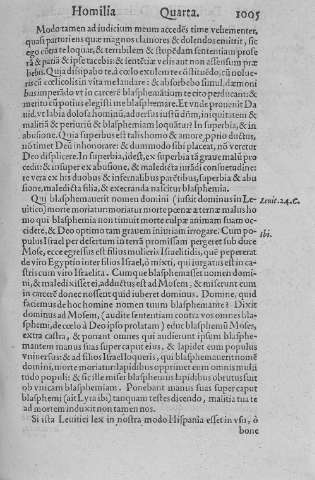 Homilia Quarta. 1005
Modo tamen ad iudicium meum accedes time vehementer,
quasi parturiens magnos clamores & dolendos emittit, sic
ego cõtra te loquar, & terribilem & stupẽdam sententiam profe
rã & patiã & ipse tacebis: & sentẽciæ velis aut non assensum præ
bebis. Quia dissipabo te, à cœlo exulem te cõstituẽdo, cũ nolue-
ris cũ cœlicolis in vita me laudare: & absorbebo simul, dæmoni
bus imperãdo vt in carcerẽ blasphemãtium te cito perducant: &
mento cũ potius elegisti me blasphemare. Et vnde prouenit Da
uid, vt labia dolosa hominũ, aduersus iustũ dñm, iniquitatem &
malitiã & periuriũ & blasphemiam loquãtur? In superbia, & in
abusione. Quia superbus est talis homo & amore, pprio ductus,
nõ timet Deũ inhonorare: & dummodo sibi placeat, nõ veretur
Deo displicere. In superbia, idest, ex superbia tã graue malũ pro
cedit: & insuper ex abusione, & maledicta iurãdi consuetudine:
ex vera ex his duobus & infernalibus parẽtibus, superbia & abu
sione, maledicta filia, & execranda nascitur blasphemia.
Qui blasphemauerit nomen domini (iussit dominus in Le- Leuit. 24. C.
uitico) morte moriatur moriatur morte pœnæ æternæ malus ho
mo qui blasphemia non timuit morte animam suam oc-
cidere, & Deo optimo tam grauem iniuriam irrogare. Cum po- ibi.
pulus Israel per desertum in terrã promissam pergeret sub duce
Mose, ecce egressus est filius mulieris Israelitidis, quẽ pepererat
de viro Egyptio inter filios Israel, ò mixti, qui iurgatus est in ca-
stris cum viro Israelita. Cumque blasphemasset nomen domi-
ni, & maledixisset ei, adductus est ad Mosem, & miserunt eum
in carcerẽ donec nossent quid iuberet dominus. Domine, quid
faciemus de hoc homine nomen tuum blasphemante? Dixit
dominus ad Mosem, (audite sententiam contra vos omnes bla-
sphemi, de cœlo à Deo ipso prolatam) educ blasphemũ Moses,
extra castra, & ponant omnes qui audierunt ipsum blasphe-
mantem manus suas super caput eius, & lapidet eum populus
vniuersus: & ad filios Israel loqueris, qui blasphemauerit nomẽ
domini, morte moriatur lapidibus opprimet eum omnis multi
tudo populi: & sic ille miser blasphemus lapidibus obrutus fuit
ob vnicam blasphemiam. Ponebant manus suas super caput
blasphemi (ait Lyra ibi) tanquam testes dicendo, malitia tua te
ad mortem induxit non tamen nos.
Si ista Leuitici lex in nostra modo Hispania esset in vsu, ô
bone